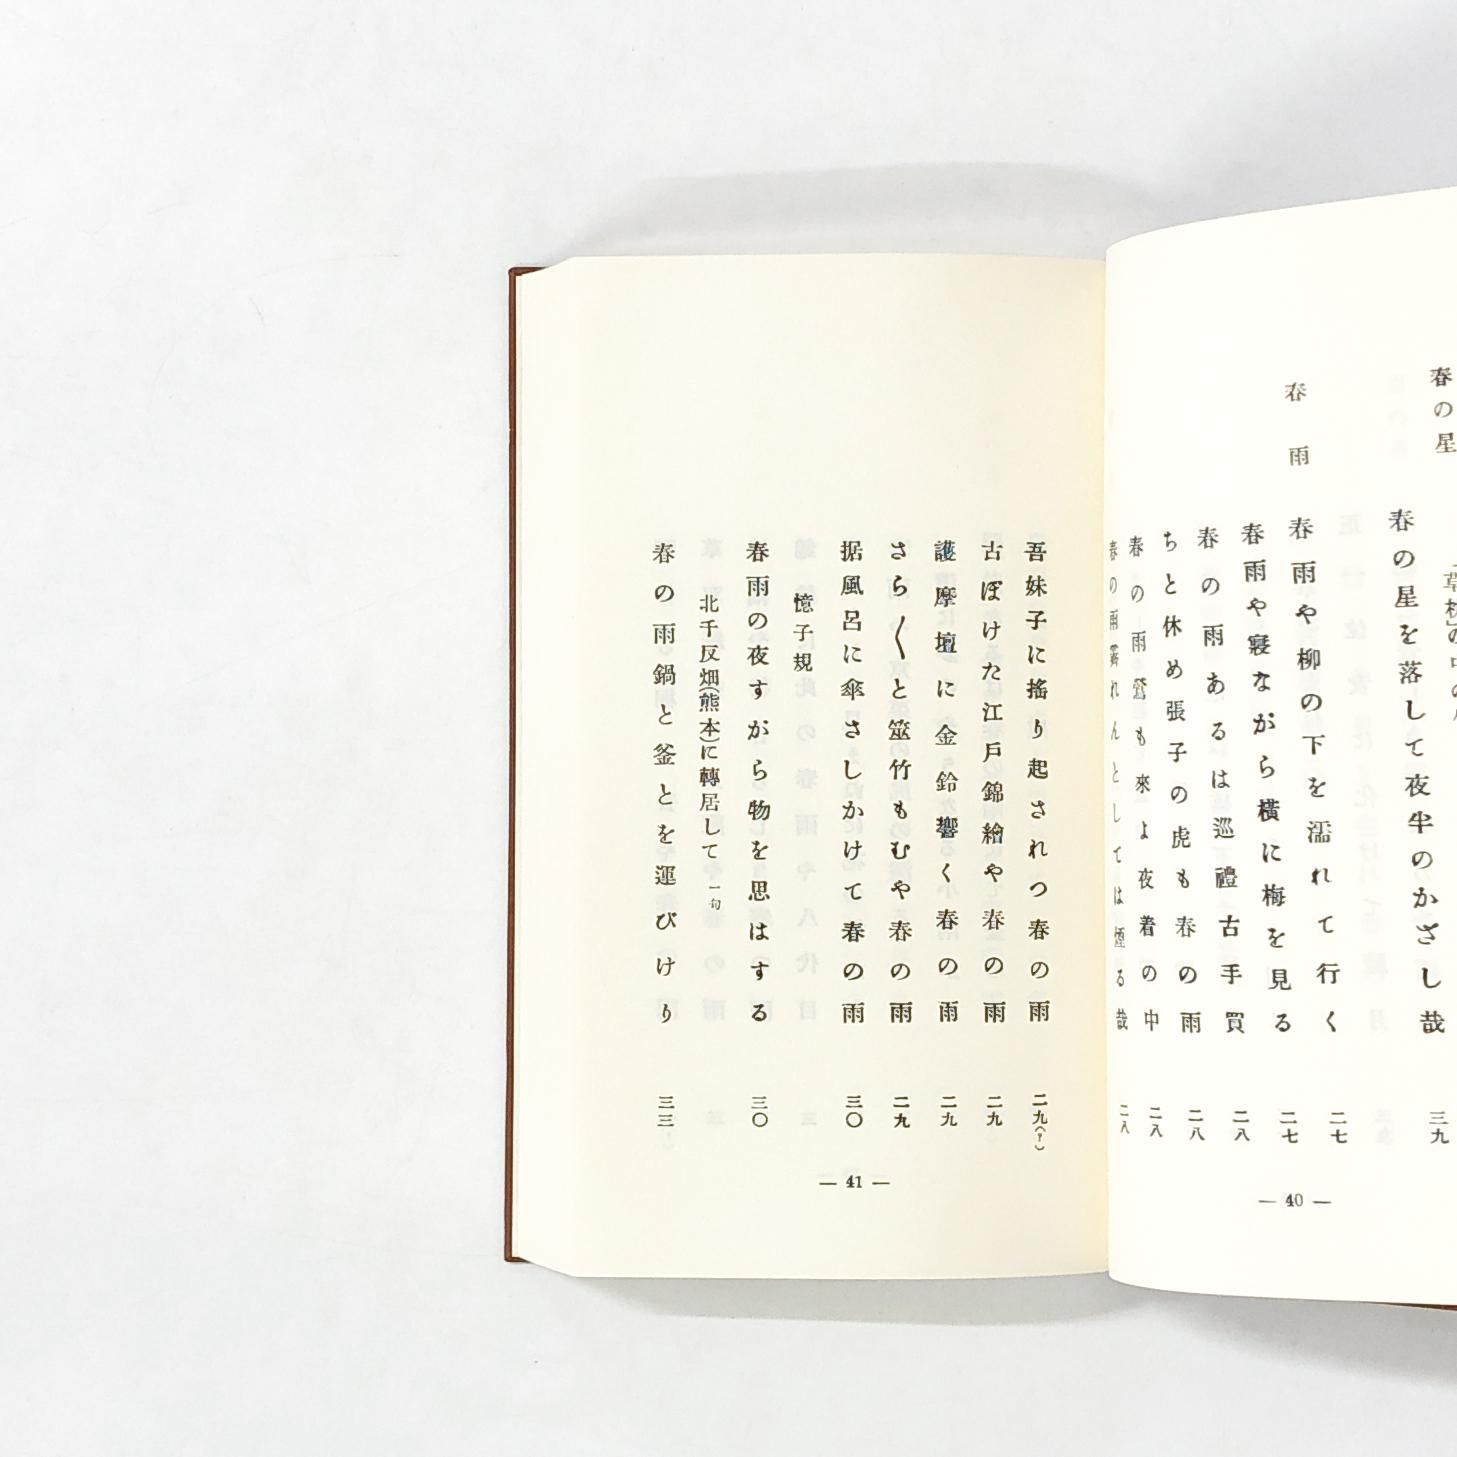 春の星
「草枕」の中の
春の星を落して夜半のかざし哉 三九
春雨
春雨や柳の下を濡れて行く 二七
春雨や寝ながら橫に梅を見る 二七
春の雨あるは巡禮古手買 二八
ちと休め張子の虎も春の雨 二八
春の雨鶯も來よ夜着の中 二八
春の雨霽れんとしては煙る哉 二八
— 40 —
吾妹子に搖り起されつ春の雨 二九(?)
古ぼけた江戸錦繪や春の雨 二九
護摩壇に金鈴響く春の雨 二九
さら〱と筮竹もむや春の雨 二九
据風呂に傘さしかけて春の雨 三〇
憶子規
春雨の夜すがら物を思はする 三〇
北千反畑(熊本)に轉居して 一句
春の雨鍋と釜とを運びけり 三三
— 41 —